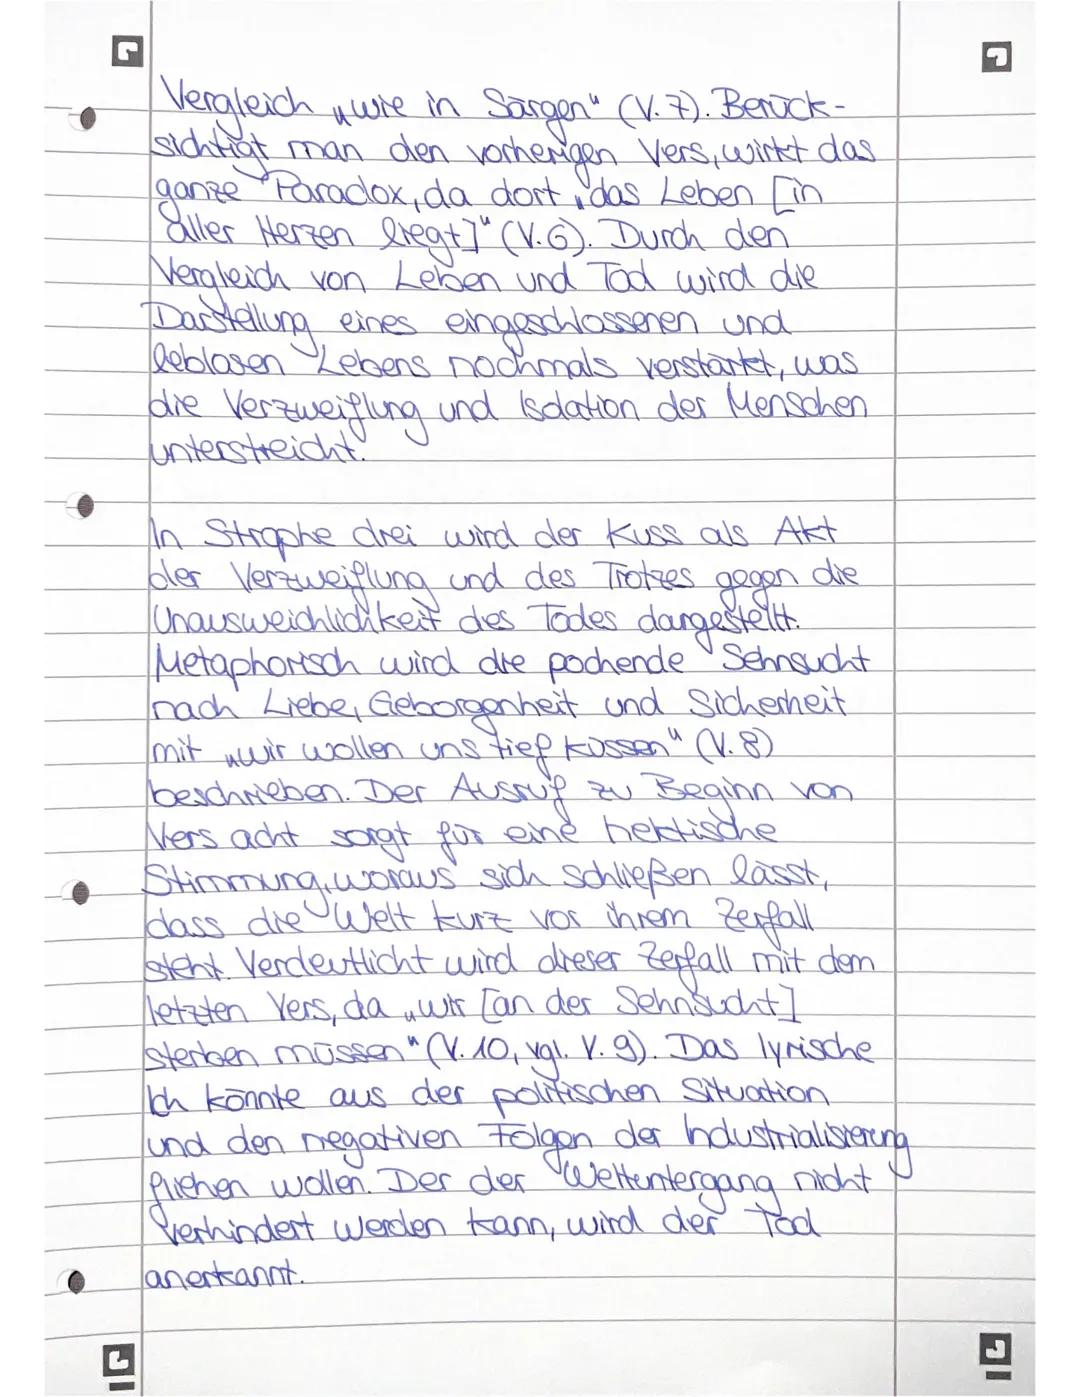 Vergleich „wie in Särgen" (V. 7). Berück-
sichtigt man den vorherigen Vers, wirkt das
ganze Paradox, da dort „das Leben [in
aller Herzen liegt]" (V. 6). Durch den
Vergleich von Leben und Tod wird die
Darstellung eines eingeschlossenen und
leblosen Lebens nochmals verstärkt, was
die Verzweiflung und Isolation der Menschen
unterstreicht.
In Strophe drei wird der Kuss als Akt
der Verzweiflung und des Trotzes gegen die
Unausweichlichkeit des Todes dargestellt.
Metaphorisch wird die pochende Sehnsucht
nach Liebe, Geborgenheit und Sicherheit
mit „wir wollen uns tief küssen" (V. 8)
beschrieben. Der Ausruf zu Beginn von
Vers acht sorgt für eine hektische
Stimmung, woraus sich schließen lässt,
dass die Welt kurz vor ihrem Zerfall
steht. Verdeutlicht wird dieser Zerfall mit dem
letzten Vers, da „wir [an der Sehnsucht]
sterben müssen" (V. 10, vgl. V. 9). Das lyrische
Ich könnte aus der politischen Situation
und den negativen Folgen der Industrialisierung
fliehen wollen. Der der Weltuntergang nicht
verhindert werden kann, wird der Tod
anerkannt.